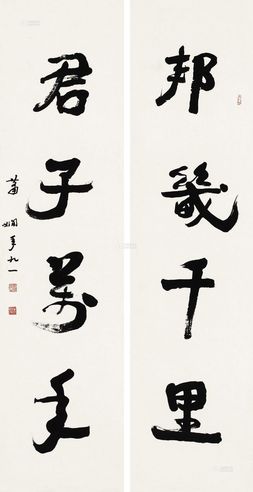 邦畿千里
君子萬年
蕭嫻年九一